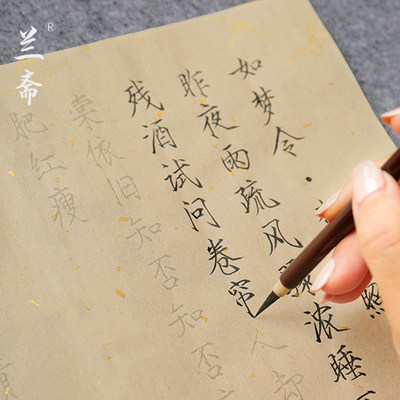 兰斋
R
如梦令·照
昨夜雨疏风骤浓睡
残酒试问卷帘人却
棠依旧知否知否
肥红瘦